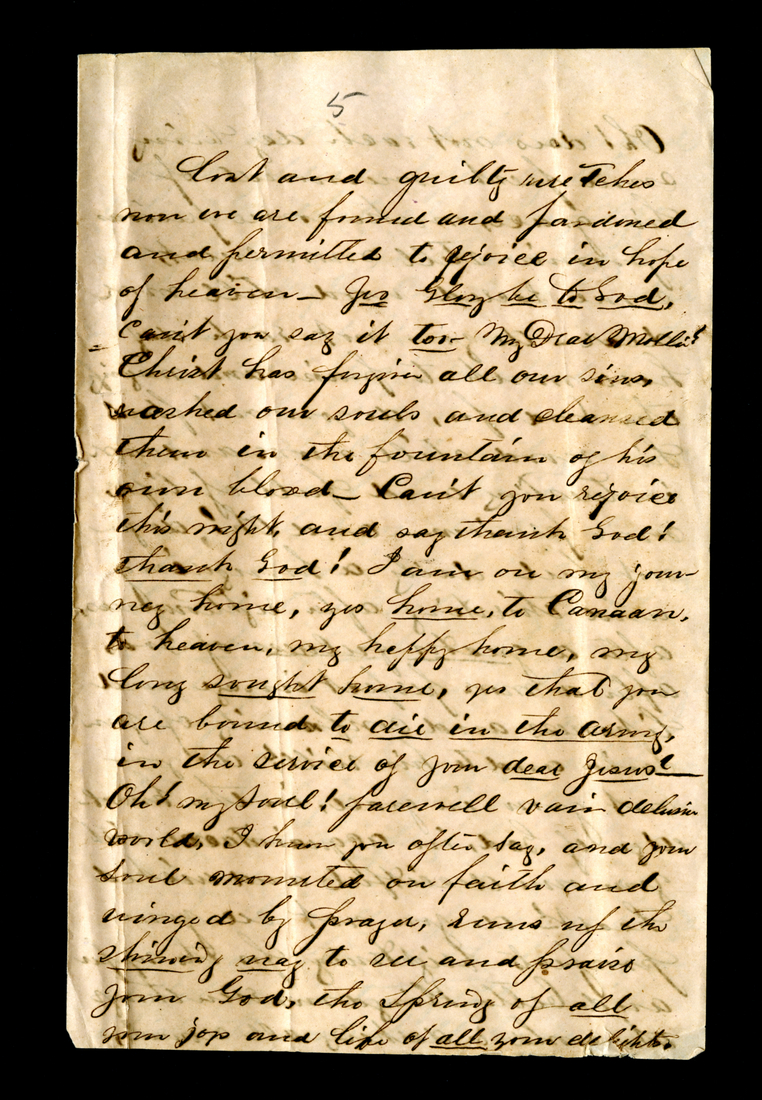 5
Lost and guilty wretches
now we are found and pardoned
and permitted to rejoice in hope
of heaven— Yes Glory be to God,
Can't you say it too— My Dear Mollie?
Christ has forgiven all our sins,
washed our souls, and cleansed
them in the fountain of his
own blood— Can't you rejoice
this night, and say thank God!
thank God! I am on my jour-
ney home, yes home, to Canaan,
to heaven, my happy home, my
long sought home, yes that you
are bound to die in the army,
in the service of your dear Jesus!
Oh! my soul! farewell vain delusive
world, I hear you often say, and your
soul mounted on faith and
winged by prayer, runs up the
shining way to see and praise
your God, the Spring of all
your joys and life of all your delights.